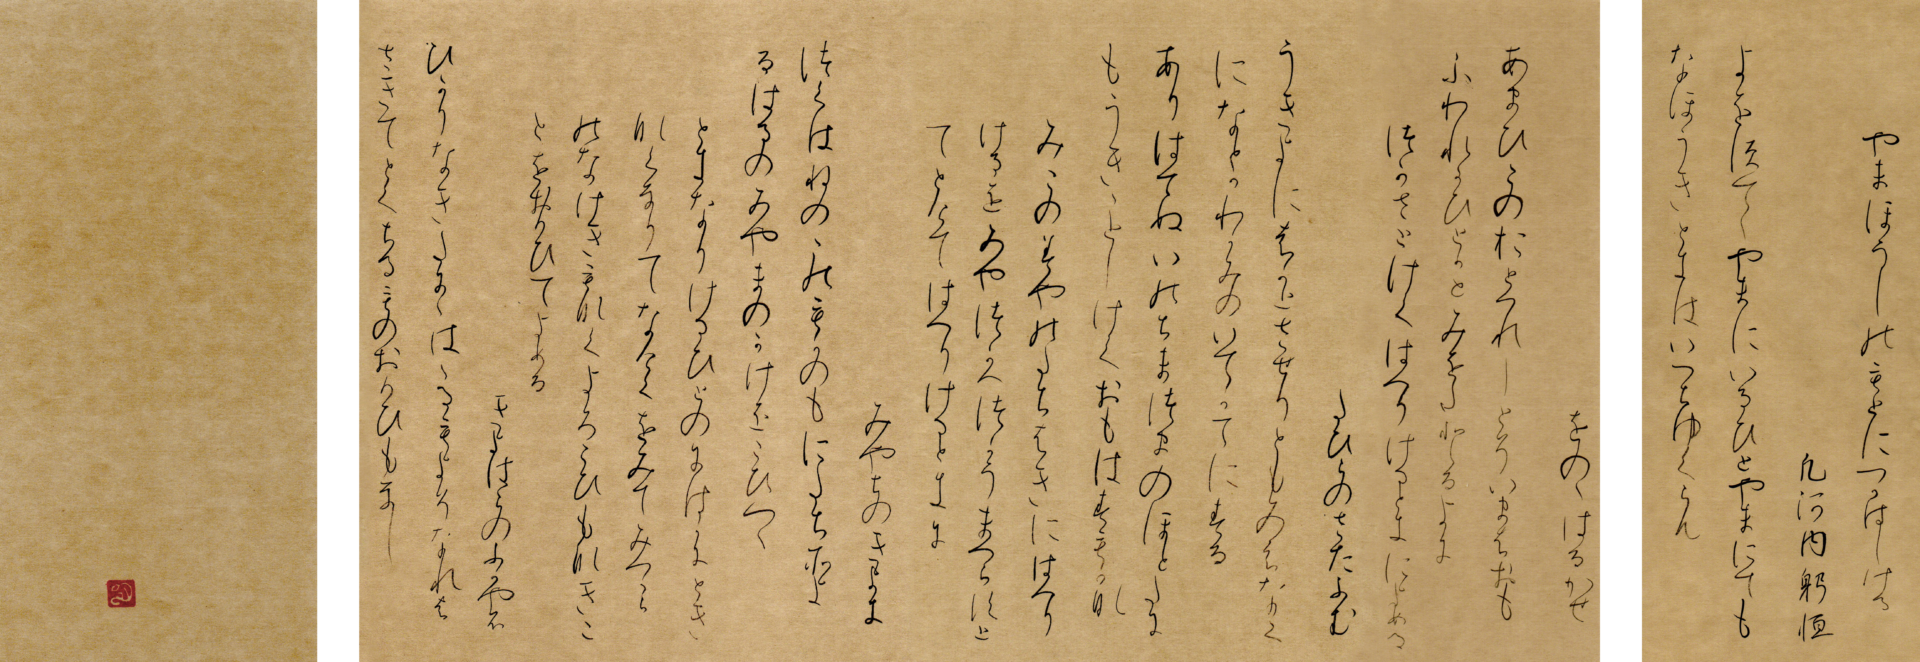 やまほうしのもとにつかはしける
凡河内躬恒
よをすててやまにいるひとやまにても
なほうきときはいつちゆくらん
をののはるかせ
あまひこのおとつれしとそいまはおも
ふわれかひとかとみをたとるよに
つかさとけてはへりけるときによめる
たひらのさたふむ
うきよにはかとさせりともみえなく
になとかわかみのいてかてにする
ありはてぬいのちまつまのほとたに
もうきことしけくおもはすもかな
みこのみやのたちはきにはへり
けるをみやつかへつかうまつらすと
てとけてはへりけるときに
みやちのきよき
つくはねのこのもかのもにたちそよ
るはるのみやまのかけをこひつつ
ときなりけるひとのにはかにとき
なくなりてなけくをみてみつから
のなけきもなくよろこひもなきこ
とをおもひてよめる
きよはらのふかやふ
ひかりなきたににははるもよそなれは
さきてとくちるものおもひもなし